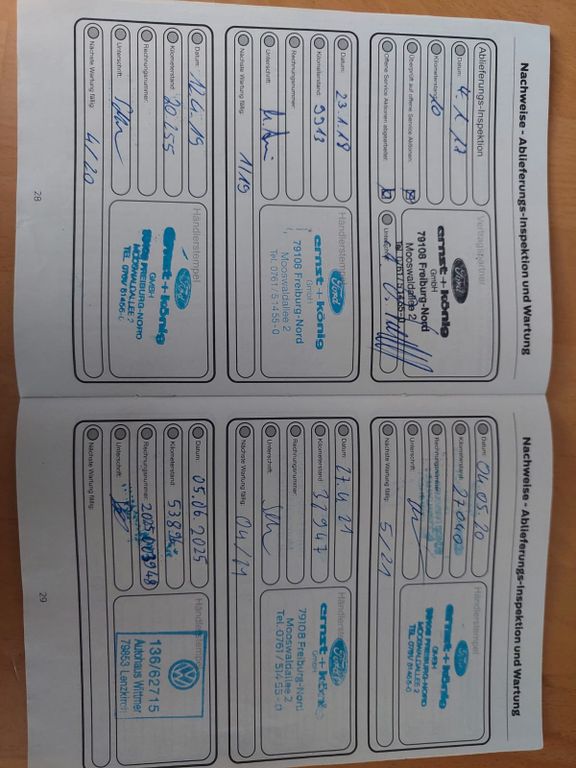 Nachweise - Ablieferungs-Inspektion und Wartung
Ablieferungs-Inspektion
Datum: 4.1.17
Kilometerstand: 10
Überprüft auf offene Service Aktionen:
Offene Service Aktionen abgearbeitet:
Vertragspartner
Ford
ernst+könig
GmbH
79108 Freiburg-Nord
Mooswaldallee 2
Tel. 0761/51455-0
Datum: 23.1.18
Kilometerstand: 9913
Rechnungsnummer:
Unterschrift:
Nächste Wartung fällig: 1/19
Händlerstempel
Ford
ernst+könig
GmbH
79108 Freiburg-Nord
Mooswaldallee 2
Tel. 0761/51455-0
Datum: 12.4.19
Kilometerstand: 20255
Rechnungsnummer:
Unterschrift:
Nächste Wartung fällig: 4/20
Händlerstempel
Ford
ernst+könig
GMBH
FREIBURG-NORD
MOOSWALDALLEE 2
TEL.
28
Nachweise - Ablieferungs-Inspektion und Wartung
Datum: 04.05.20
Kilometerstand:
Rechnungsnummer:
Unterschrift:
Nächste Wartung fällig: 5/21
Händlerstempel
Ford
ernst+könig
GMBH
FREIBURG-NORD
MOOSWALDALLEE 2
TEL.
Datum: 27.4.21
Kilometerstand: 32947
Rechnungsnummer:
Unterschrift:
Nächste Wartung fällig:
Händlerstempel
Ford
ernst+könig
GmbH
79108 Freiburg-Nord
Mooswaldallee 2
Tel. 0761/51455-0
Datum: 05.06.2025
Kilometerstand:
Rechnungsnummer:
Unterschrift:
Nächste Wartung fällig:
Händlerstempel
136/62715
Autohaus Wittmer
79853 Lenzkirch
29